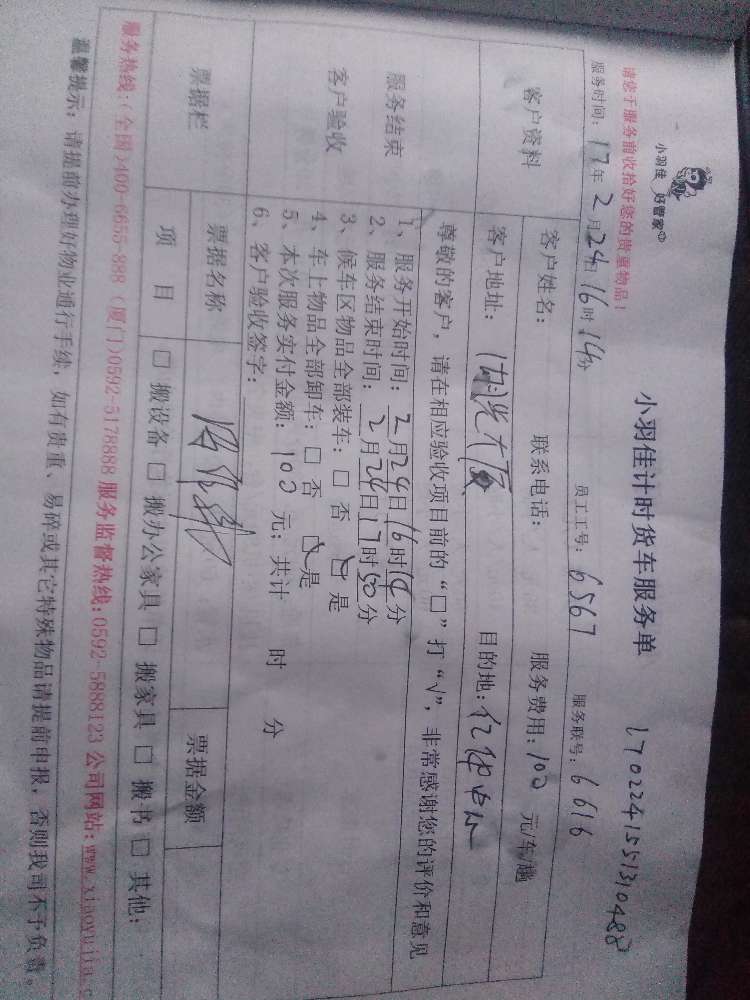 小羽佳 好管家
小羽佳计时货车服务单 1702241551310488
请您于服务前收拾好您的贵重物品！
服务时间：17年2月24日16时14分 员工工号：6567 服务联号：6616
客户资料
客户姓名： 联系电话： 服务费用：100 元/车/趟
客户地址： 目的地：亿健中心
服务结束
客户验收
尊敬的客户，请在相应验收项目前的“□”打“√”，非常感谢您的评价和意见
1、服务开始时间：2月24日16时14分
2、服务结束时间：2月24日17时50分
3、候车区物品全部装车：□ 否 □ 是
4、车上物品全部卸车：□ 否 □ 是
5、本次服务实付金额：100元；共计 时 分
6、客户验收签字：
票据栏
票据名称 票据金额
项 目 □ 搬设备 □ 搬办公家具 □ 搬家具 □ 搬书 □ 其他：
服务热线：(全国)400-6655-888 (厦门)0592-5178888 服务监督热线：0592-5888123 公司网站：www.xiaoyujia.c
温馨提示：请提前办理好物业通行手续，如有贵重、易碎或其它特殊物品请提前申报，否则我司不予负责。